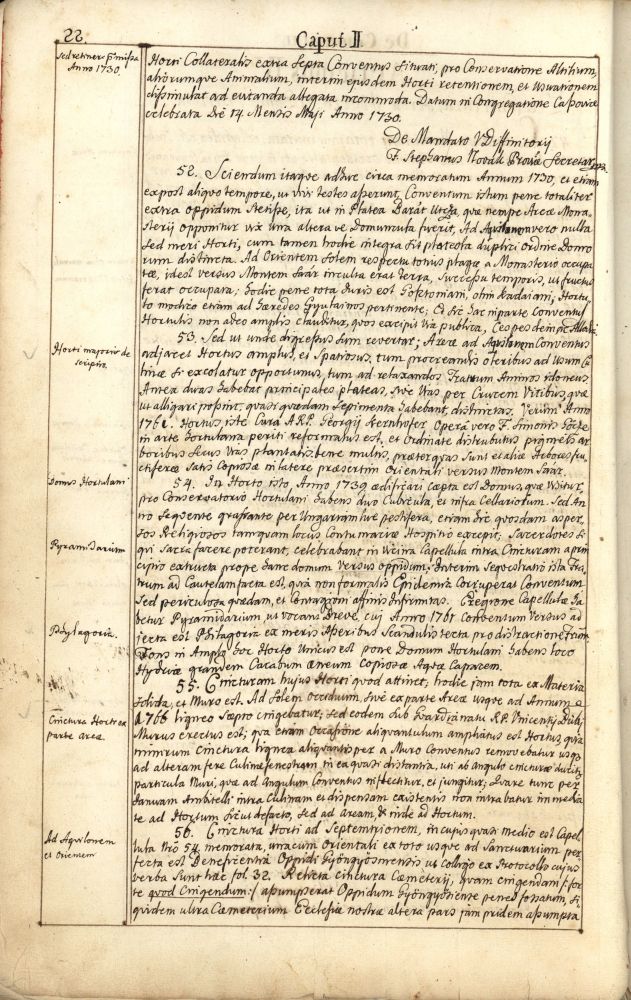 22
Caput II
Sed retinere permissa
Anno 1730.
Horti Collateralis extra septa Conventus situati, pro Conservatione Altilium,
aliorumque Animalium, interim ejusdem Horti retentionem, et Usuationem
dissimulat ad evitanda allegata incommoda. Datum in Congregatione Cassoviæ
celebrata Die 14. Mensis Maji Anno 1730.
De Mandato V. Diffinitorij
F. Stephanus Novák Provæ Secretar
52. Sciendum itaque adhuc circa memoratum Annum 1730, et etiam
ex post aliquo tempore, ut vivi testes asserunt, Conventum istum pene totaliter
extra oppidum stetisse, ita ut in Platea Barát Utcza, quæ nempe Areæ Mona-
sterij opponitur vix una altera ve Domuncula fuerit, Ad Aquilonem vero nulla
sed meri Horti, cum tamen hodie integra sit plateola duplici ordine Domo
rum distincta. Ad Orientem Solem respectu totius plagæ a Monasterio occupa-
tæ, idest versus Montem Saár inculta erat terra, successu temporis, ut fructus
ferat occupata: hodie pene tota Juris est
modico etiam ad Hæredes Gyulaianos pertinente; Et sic hac in parte Conventus
Hortulis non adeo amplis clauditur, quos excipit Via publica, Cespes deinde
Horti majoris de
scriptio
53. Sed ut unde digressus sum revertar; Areæ ad Aquilonem Conventus
adjacet Hortus amplus, et spatiosus, tum procreandis oleribus ad Usum Cu
linæ si excolatur opportunus, tum ad relaxandos Fratrum Animos idoneus
Antea duas habebat principales plateas, sive Vias per Crucem Vitibus, quæ
ut alligari possint, quasi quædam sepimenta habebant, distinctas. Verum Anno
Hortus iste Cura A.R.P. Georgij Kernhofer, Opera vero F. Simonis
in arte hortulana periti reformatus est, et Ordinate distributus primelis ar
boribus secus Vias plantatis bene multis, præterquas sunt et aliæ Arbores fru
ctiferæ satis Copiosæ in latere præsertim Orientali versus Montem Saár.
Domus Hortulani
54. In Horto isto, Anno 1739 ædificari cæpta est Domus, quæ visitur,
pro Conservatorio Hortulani habens duo Cubicula, et infra Cellariolum. Sed An
no sequente grassante per Ungariam lue pestifera, etiam hic quosdam asper
sos Religiosos tamquam locus Contumaciæ Hospitio excepit; Sacerdotes si
qui Sacra facere poterant, celebrabant in vicina Capellula intra Cincturam a prin
cipio extructa prope hanc domum versus oppidum: Interim sequestratio ista Fra
trum ad Cautelam facta est, quia non formalis Epidemia Corruperat Conventum
Sed periculosa quædam, et Contagioni affinis Infirmitas. E regione Capellulæ ha
Pyramidarium
betur Pyramidarium, ut vocant Breve, cui Anno 1761 Conventum versus ad
Phylagoria.
jecta est Philagoria ex meris Asseribus Scandulis tecta pro distractione Fratrum
Fons in Amplo hoc Horto Unicus est pone Domum Hortulani habens loco
Hydriæ grandem Cacabum æneum Copiosæ Aquæ Capacem.
55. Cincturam hujus Horti quod attinet, hodie jam tota ex Materia
solida, et Muro est. Ad Solem Occiduum, sive ex parte Areæ usque ad Annum
Cinctura Horti ex
parte areæ.
1766 ligneo Sæpto cingebatur, sed eodem sub Guardianatu R.P. Vincentij
Murus erectus est; qua etiam Occasione aliquantulum ampliatus est Hortus, quia
nimirum Cinctura lignea aliquantis per a Muro Conventus removebatur usque
ad alteram fere Culinæ fenestram in ea quasi distantia, uti ab angulo cincturæ ducitur
particula Muri, quæ ad Angulum Conventus inflectitur, et jungitur; Quare tunc per
Januam Ambitelli intra Culinam et dispensam existentis non intrabatur immedia
te ad Hortum sicut de facto, sed ad aream, & inde ad Hortum.
Ad Aquilonem
et Orientem
56. Cinctura Horti ad Septemtrionem, in cujus quasi medio est Capel
lula Nro 54 memorata, una cum Orientali ex toto usque ad Sanctuarium per
fecta est Beneficentia Oppidi Gyöngyösiensis ut colligo ex Protocollo cujus
verba sunt hæc fol. 32. Relicta cinctura Cæmeterij, quam cingendam /: for
te quod Cingendum :/ assumpserat Oppidum Gyöngyösiense penes fossatum, si
quidem ultra Cæmeterium Ecclesiæ nostræ altera pars jam pridem assumpta